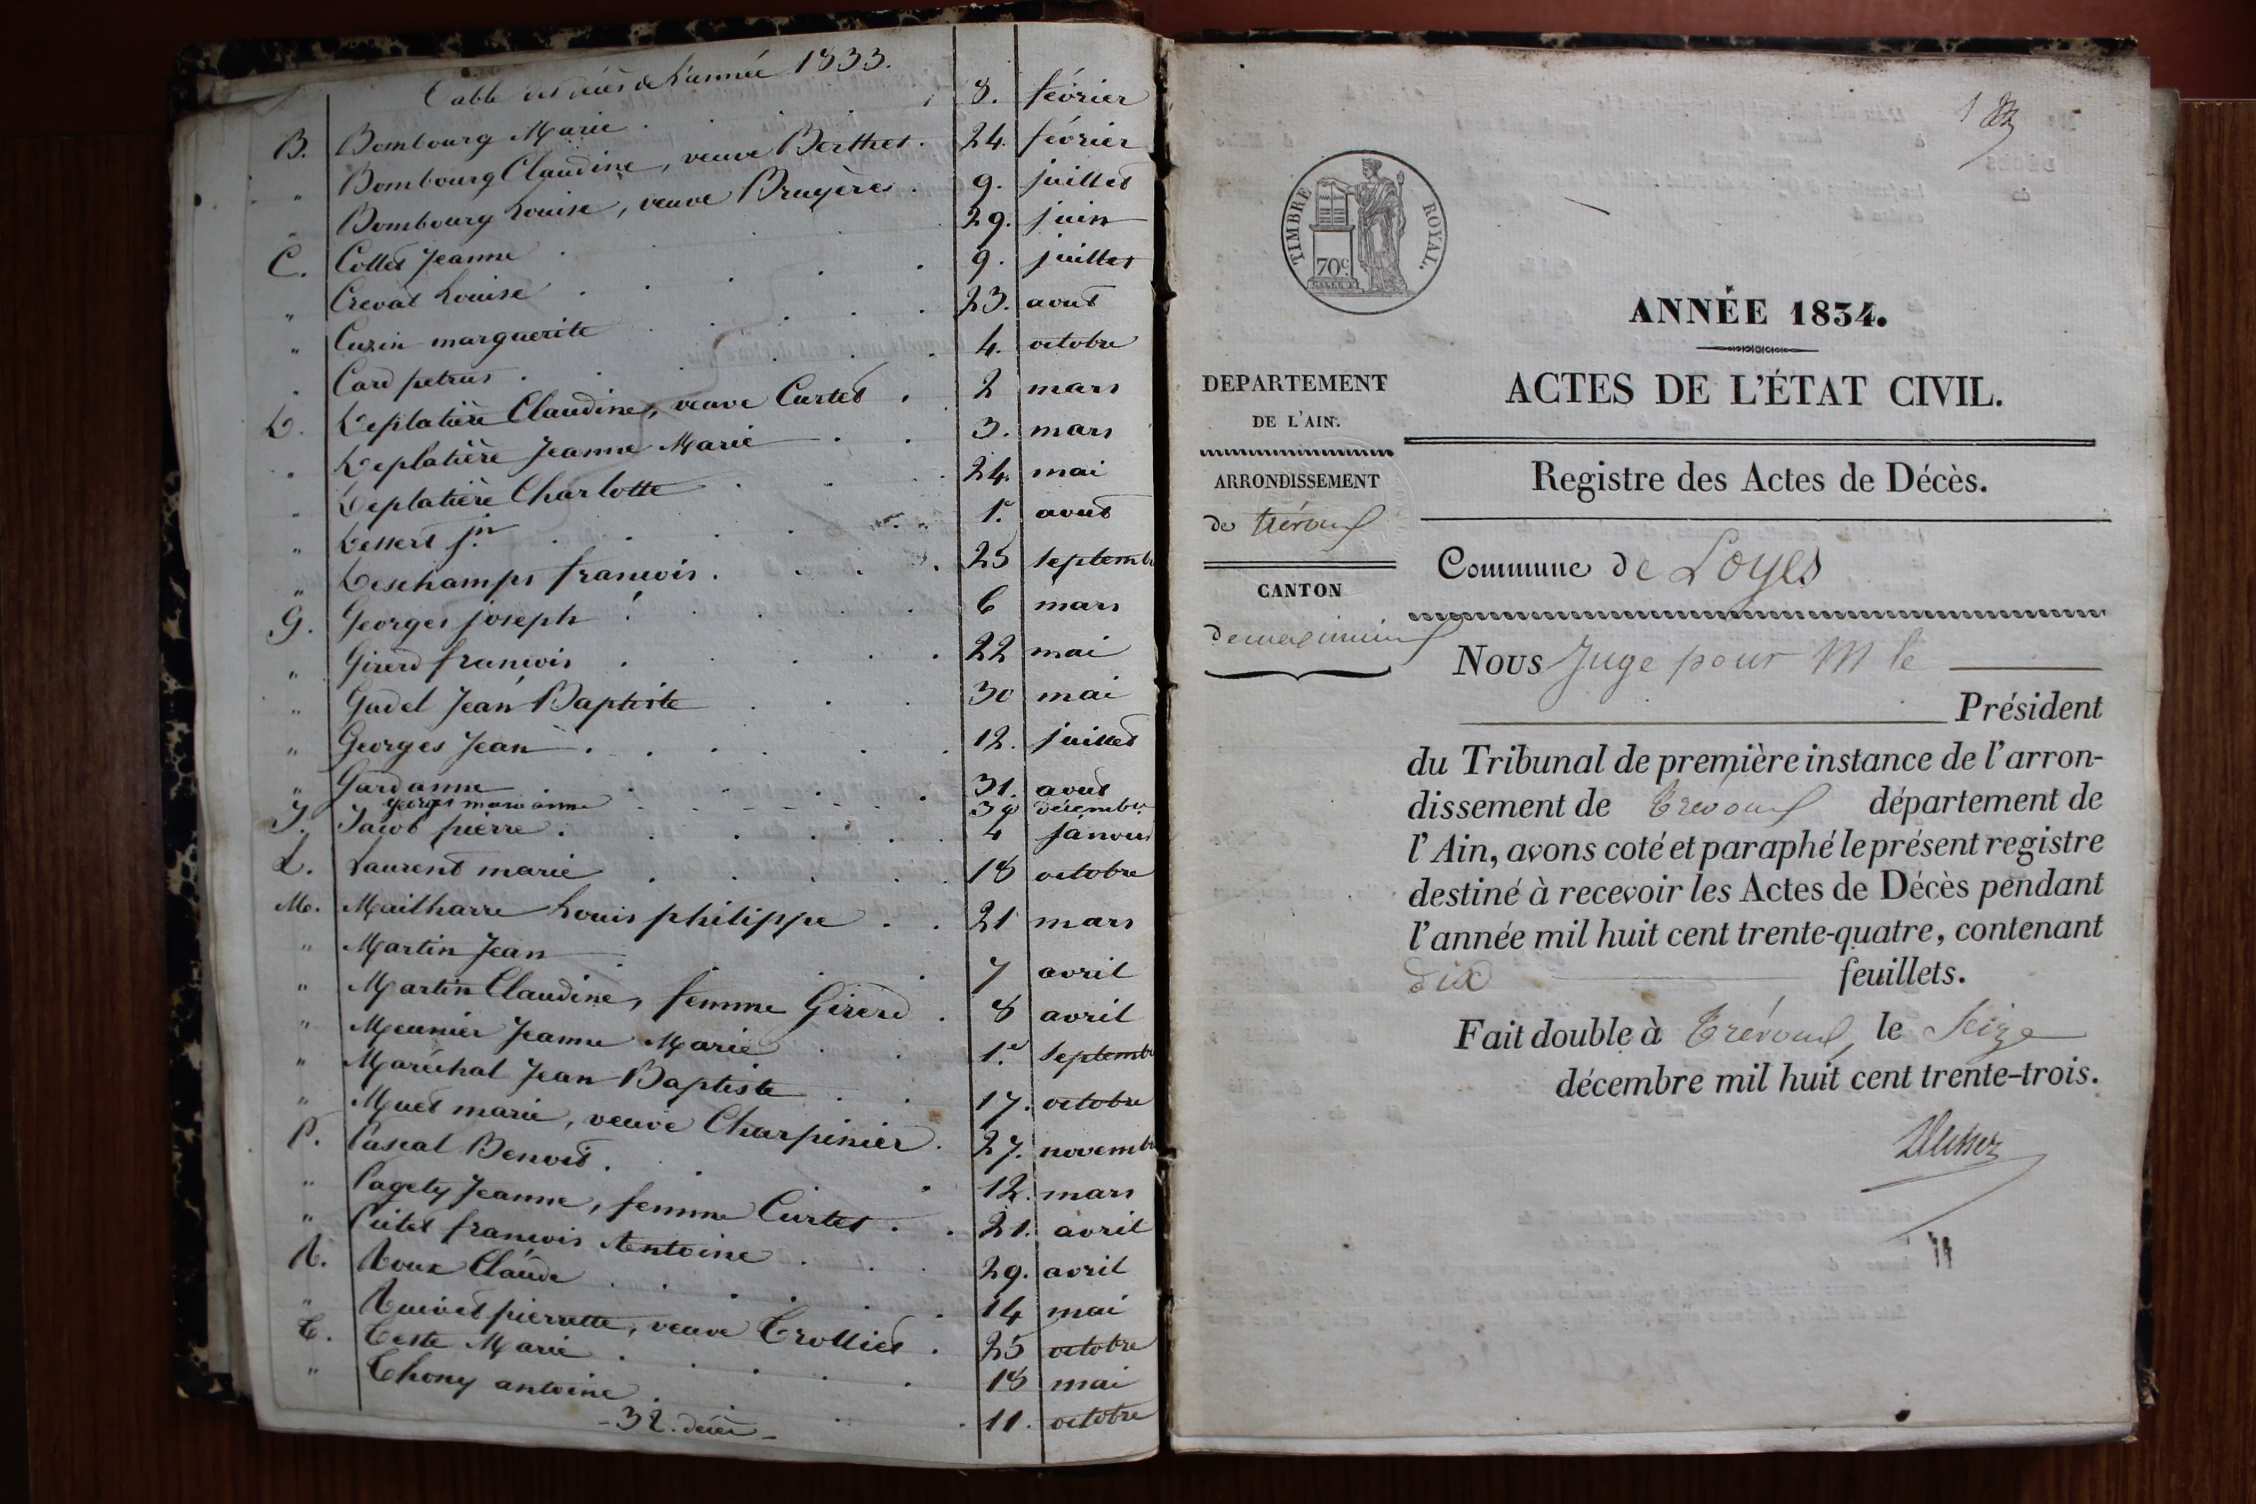 Table des décès de l'année 1833.
B. Bombourg Marie . 8. février
" Bombourg Claudine, veuve Berthet. 24. février
" Bombourg Louise, veuve Bruyère . 9. juillet
C. Collet Jeanne . 29. juin
" Crevat Louise . 9. juillet
" Cuzin marguerite . 23. aout
" Card petrus . 4. octobre
D. Deplatière Claudine, veuve Curtet . 2 mars
" Deplatière Jeanne Marie . 3. mars
" Deplatière Charlotte . 24. mai
" Dessert jn . 1er aout
" Deschamps francois . 25 septembre
G. Georges joseph . 6 mars
" Girerd francois . 22 mai
" Gudel Jean Baptiste . 30 mai
" Georges Jean . 12. juillet
" Gard anne . 31. aout
georges marie anne décembre
J. Jacob pierre . 4 janvier
L. Laurent marie . 18 octobre
M. Mailharre Louis philippe . 21 mars
" Martin Jean . 7 avril
" Martin Claudine, femme Girerd . 8 avril
" Meunier Jeanne Marie . 1er septembre
" Maréchal Jean Baptiste . 17. octobre
" Muet marie, veuve Charpinier . 27. novembre
P. Pascal Benoit . 12. mars
" Pagety Jeanne, femme Curtet . 21. avril
" Piclet francois Antoine . 29. avril
R. Roux Claude . 14 mai
" Ruivet pierrette, veuve Trolliet . 25 octobre
T. Teste Marie . 18 mai
" Thony antoine . 11. octobre
- 32. décès -
1
TIMBRE ROYAL.
70c.
ANNÉE 1834.
ACTES DE L'ÉTAT CIVIL.
DEPARTEMENT
DE L'AIN.
Registre des Actes de Décès.
ARRONDISSEMENT
de trévoux
Commune de Loyes
CANTON
de meximieux
Nous Juge pour M le
Président
du Tribunal de première instance de l'arron-
dissement de Trévoux département de
l'Ain, avons coté et paraphé le présent registre
destiné à recevoir les Actes de Décès pendant
l'année mil huit cent trente-quatre, contenant
dix feuillets.
Fait double à Trévoux, le Seize
décembre mil huit cent trente-trois.